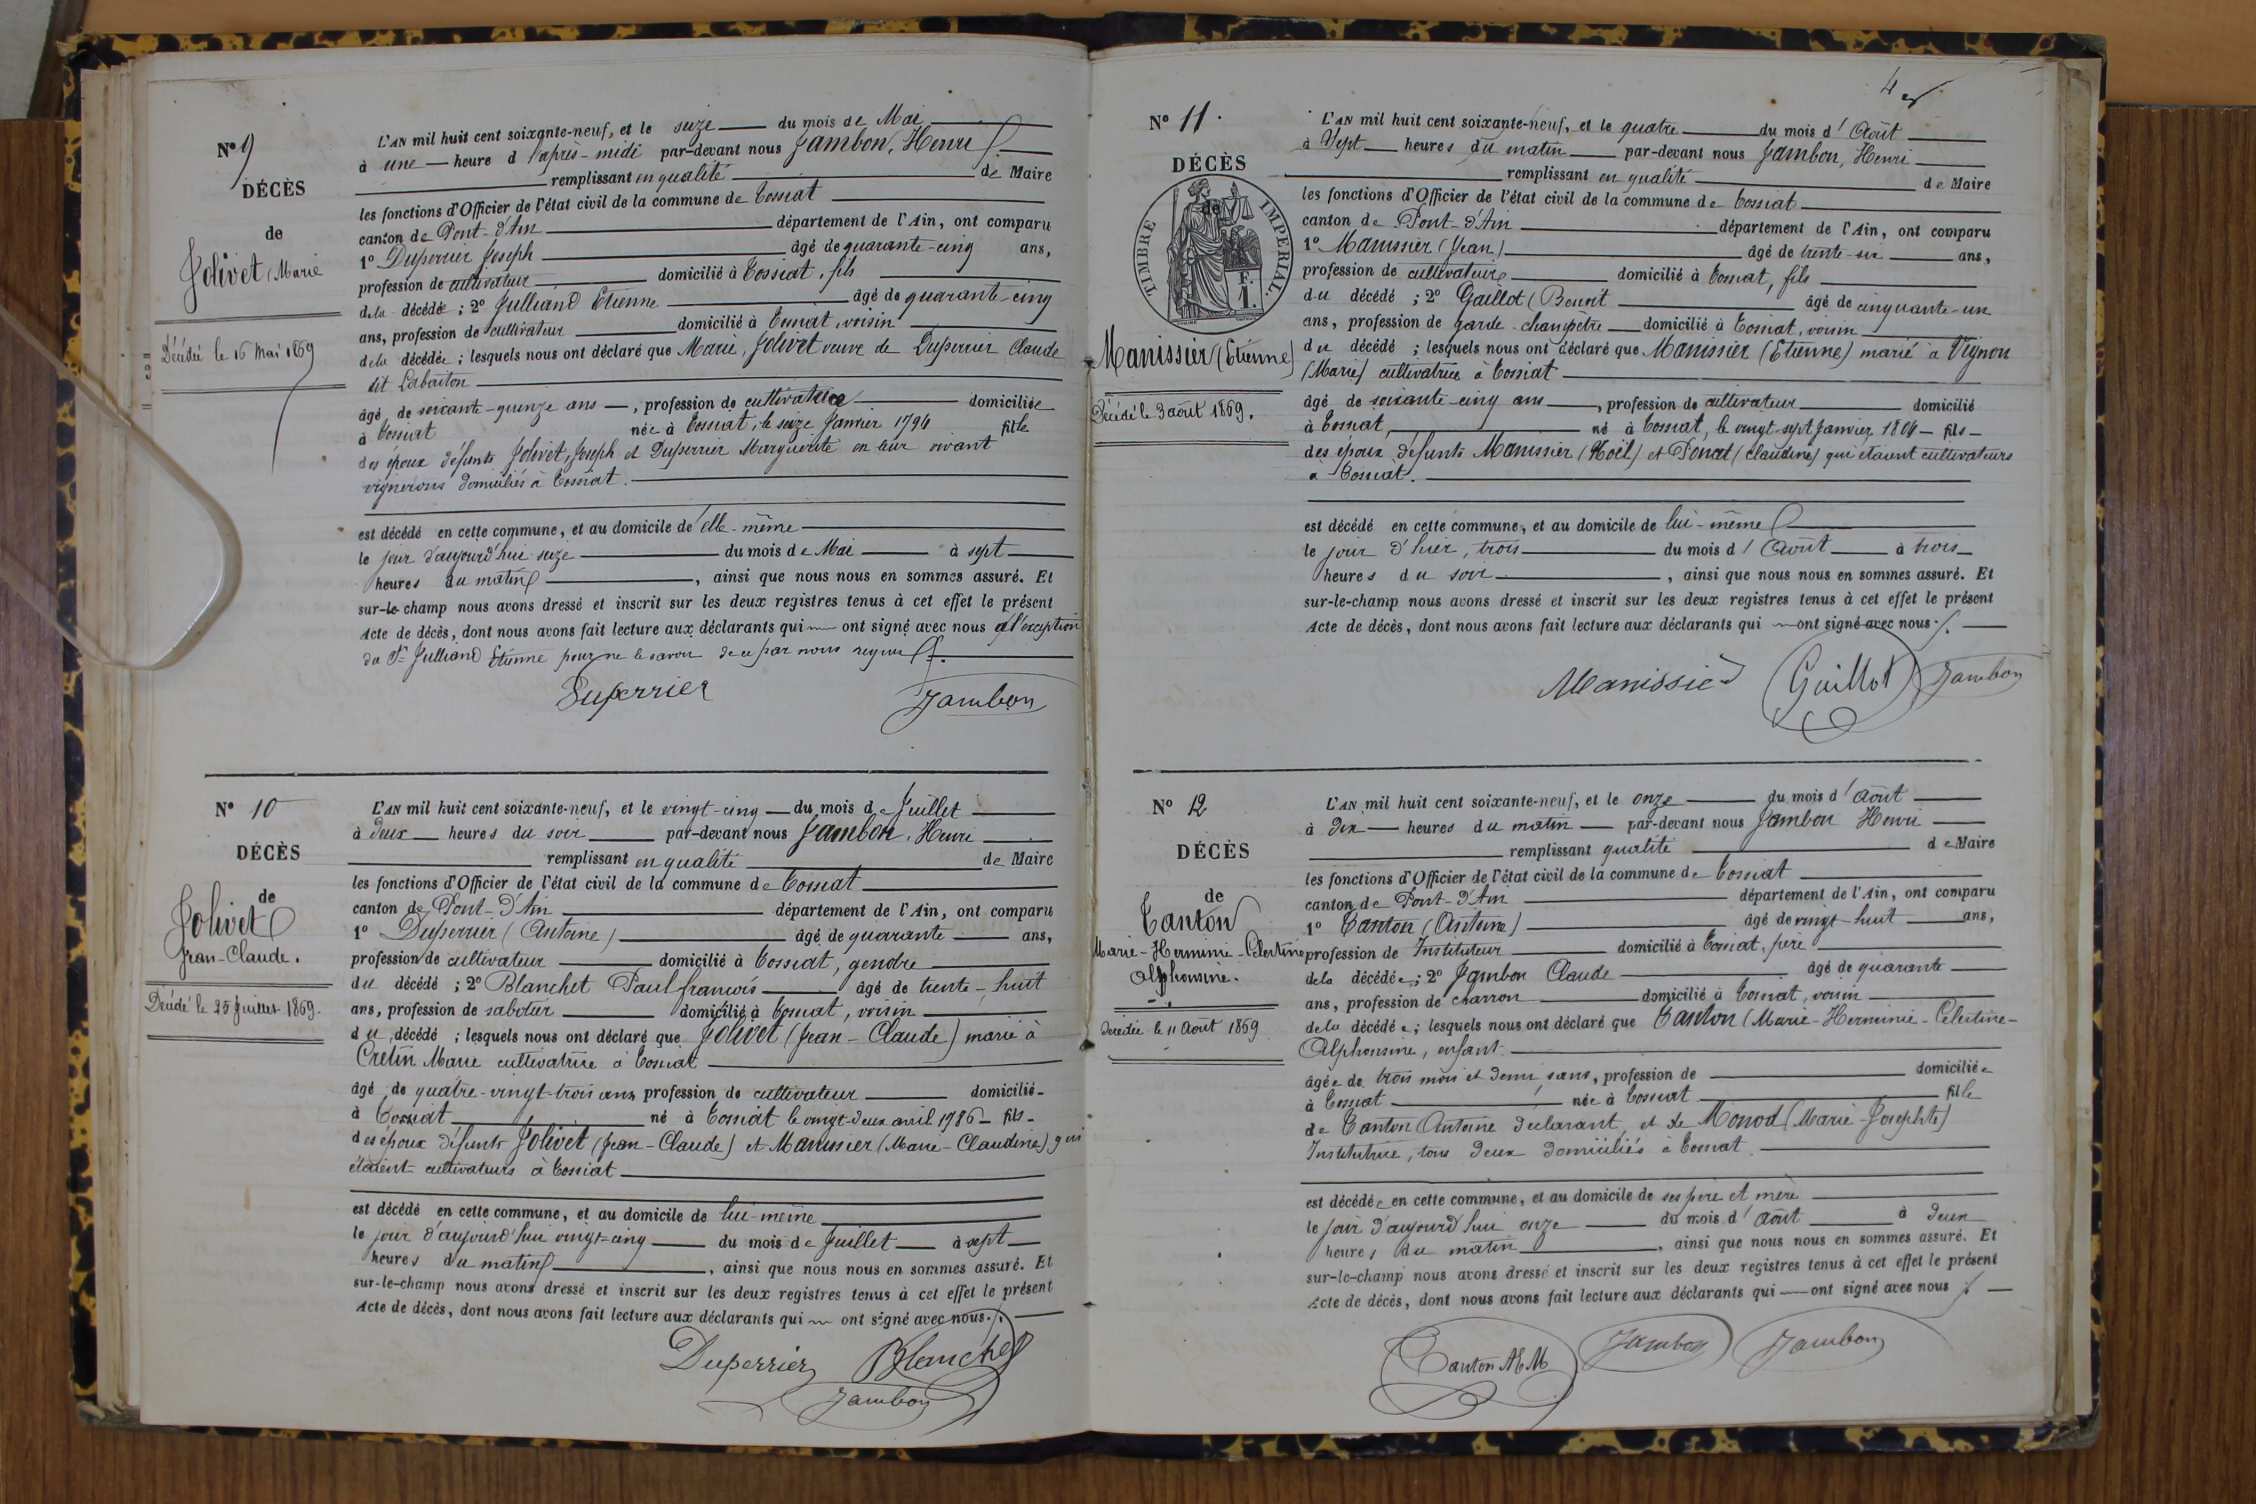 N° 9
DÉCÈS
de
Jolivet, Marie
Décédée le 16 Mai 1869
L'AN mil huit cent soixante-neuf, et le seize du mois de Mai
à une heure d l'après-midi par-devant nous Jambon, Henri
remplissant en qualité de Maire
les fonctions d'Officier de l'état civil de la commune de Tossiat
canton de Pont-d'Ain département de l'Ain, ont comparu
1° Duperrier Joseph âgé de quarante-cinq ans,
profession de cultivateur domicilié à Tossiat, fils
de la décédée ; 2° Julliand Etienne âgé de quarante-cinq
ans, profession de cultivateur domicilié à Tossiat, voisin
de la décédée ; lesquels nous ont déclaré que Marie, Jolivet veuve de Duperrier Claude
dit
âgé de soixante-quinze ans, profession de cultivatrice domiciliée
à Tossiat née à Tossiat, le seize Janvier 1794 fille
des époux défunts Jolivet, Joseph et Duperrier Marguerite en leur vivant
vignerons domiciliés à Tossiat.
est décédé en cette commune, et au domicile de elle-même
le jour d'aujourd'hui seize du mois de Mai à sept
heures du matin, ainsi que nous nous en sommes assuré. Et
sur-le-champ nous avons dressé et inscrit sur les deux registres tenus à cet effet le présent
Acte de décès, dont nous avons fait lecture aux déclarants qui ont signé avec nous à l'exception
du Sr Julliand Etienne pour ne le savoir de ce par nous requis.
Duperrier Jambon
N° 10
DÉCÈS
de
Jolivet
Jean-Claude.
Décédé le 25 Juillet 1869.
L'AN mil huit cent soixante-neuf, et le vingt-cinq du mois de Juillet
à deux heures du soir par-devant nous Jambon, Henri
remplissant en qualité de Maire
les fonctions d'Officier de l'état civil de la commune de Tossiat
canton de Pont-d'Ain département de l'Ain, ont comparu
1° Duperrier (Antoine) âgé de quarante ans,
profession de cultivateur domicilié à Tossiat, gendre
du décédé ; 2° Blanchet Paul françois âgé de trente-huit
ans, profession de sabotier domicilié à Tossiat, voisin
du décédé ; lesquels nous ont déclaré que Jolivet (Jean-Claude) marié à
Cretin Marie cultivatrice à Tossiat
âgé de quatre-vingt-trois ans profession de cultivateur domicilié
à Tossiat né à Tossiat le vingt-deux avril 1786 fils
des époux défunts Jolivet (Jean-Claude) et Manissier (Marie-Claudine) qui
étaient cultivateurs à Tossiat
est décédé en cette commune, et au domicile de lui-même
le jour d'aujourd'hui vingt-cinq du mois de Juillet à sept
heures du matin, ainsi que nous nous en sommes assuré. Et
sur-le-champ nous avons dressé et inscrit sur les deux registres tenus à cet effet le présent
Acte de décès, dont nous avons fait lecture aux déclarants qui ont signé avec nous.
Duperrier Blanchet
Jambon
4
N° 11.
DÉCÈS
de
TIMBRE IMPERIAL.
F.
1.
Manissier (Etienne)
Décédé le 3 août 1869.
L'AN mil huit cent soixante-neuf, et le quatre du mois d'Août
à Sept heures du matin par-devant nous Jambon, Henri
remplissant en qualité de Maire
les fonctions d'Officier de l'état civil de la commune de Tossiat
canton de Pont-d'Ain département de l'Ain, ont comparu
1° Manissier (Jean) âgé de trente-six ans,
profession de cultivateur domicilié à Tossiat, fils
du décédé ; 2° Gaillot (Benoit âgé de cinquante-un
ans, profession de garde-champêtre domicilié à Tossiat, voisin
du décédé ; lesquels nous ont déclaré que Manissier (Etienne) marié à Vignon
(Marie) cultivatrice à Tossiat
âgé de soixante-cinq ans, profession de cultivateur domicilié
à Tossiat, né à Tossiat, le vingt-sept Janvier 1804 fils
des époux défunts Manissier (Noël) et Poncet (Claudine) qui étaient cultivateurs
à Tossiat.
est décédé en cette commune, et au domicile de lui-même
le jour d'hier, trois du mois d'Août à trois
heures du soir, ainsi que nous nous en sommes assuré. Et
sur-le-champ nous avons dressé et inscrit sur les deux registres tenus à cet effet le présent
Acte de décès, dont nous avons fait lecture aux déclarants qui ont signé avec nous.
Manissier Gaillot Jambon
N° 12
DÉCÈS
de
Tanton
Marie-Herminie-Célestine
Alphonsine.
Décédée le 11 Août 1869
L'AN mil huit cent soixante-neuf, et le onze du mois d'Août
à dix heures du matin par-devant nous Jambon Henri
remplissant qualité de Maire
les fonctions d'Officier de l'état civil de la commune de Tossiat
canton de Pont-d'Ain département de l'Ain, ont comparu
1° Tanton (Antoine) âgé de vingt-huit ans,
profession de Instituteur domicilié à Tossiat, père
de la décédée ; 2° Jambon Claude âgé de quarante
ans, profession de charron domicilié à Tossiat, voisin
de la décédée ; lesquels nous ont déclaré que Tanton (Marie-Herminie-Célestine-
Alphonsine, enfant.
âgée de trois mois et demi sans, profession de domiciliée
à Tossiat née à Tossiat fille
de Tanton Antoine déclarant, et de Monod (Marie-Josephte)
Institutrice, tous deux domiciliés à Tossiat.
est décédée en cette commune, et au domicile de ses père et mère
le jour d'aujourd'hui onze du mois d'août à deux
heures du matin, ainsi que nous nous en sommes assuré. Et
sur-le-champ nous avons dressé et inscrit sur les deux registres tenus à cet effet le présent
Acte de décès, dont nous avons fait lecture aux déclarants qui ont signé avec nous
Tanton Jambon Jambon